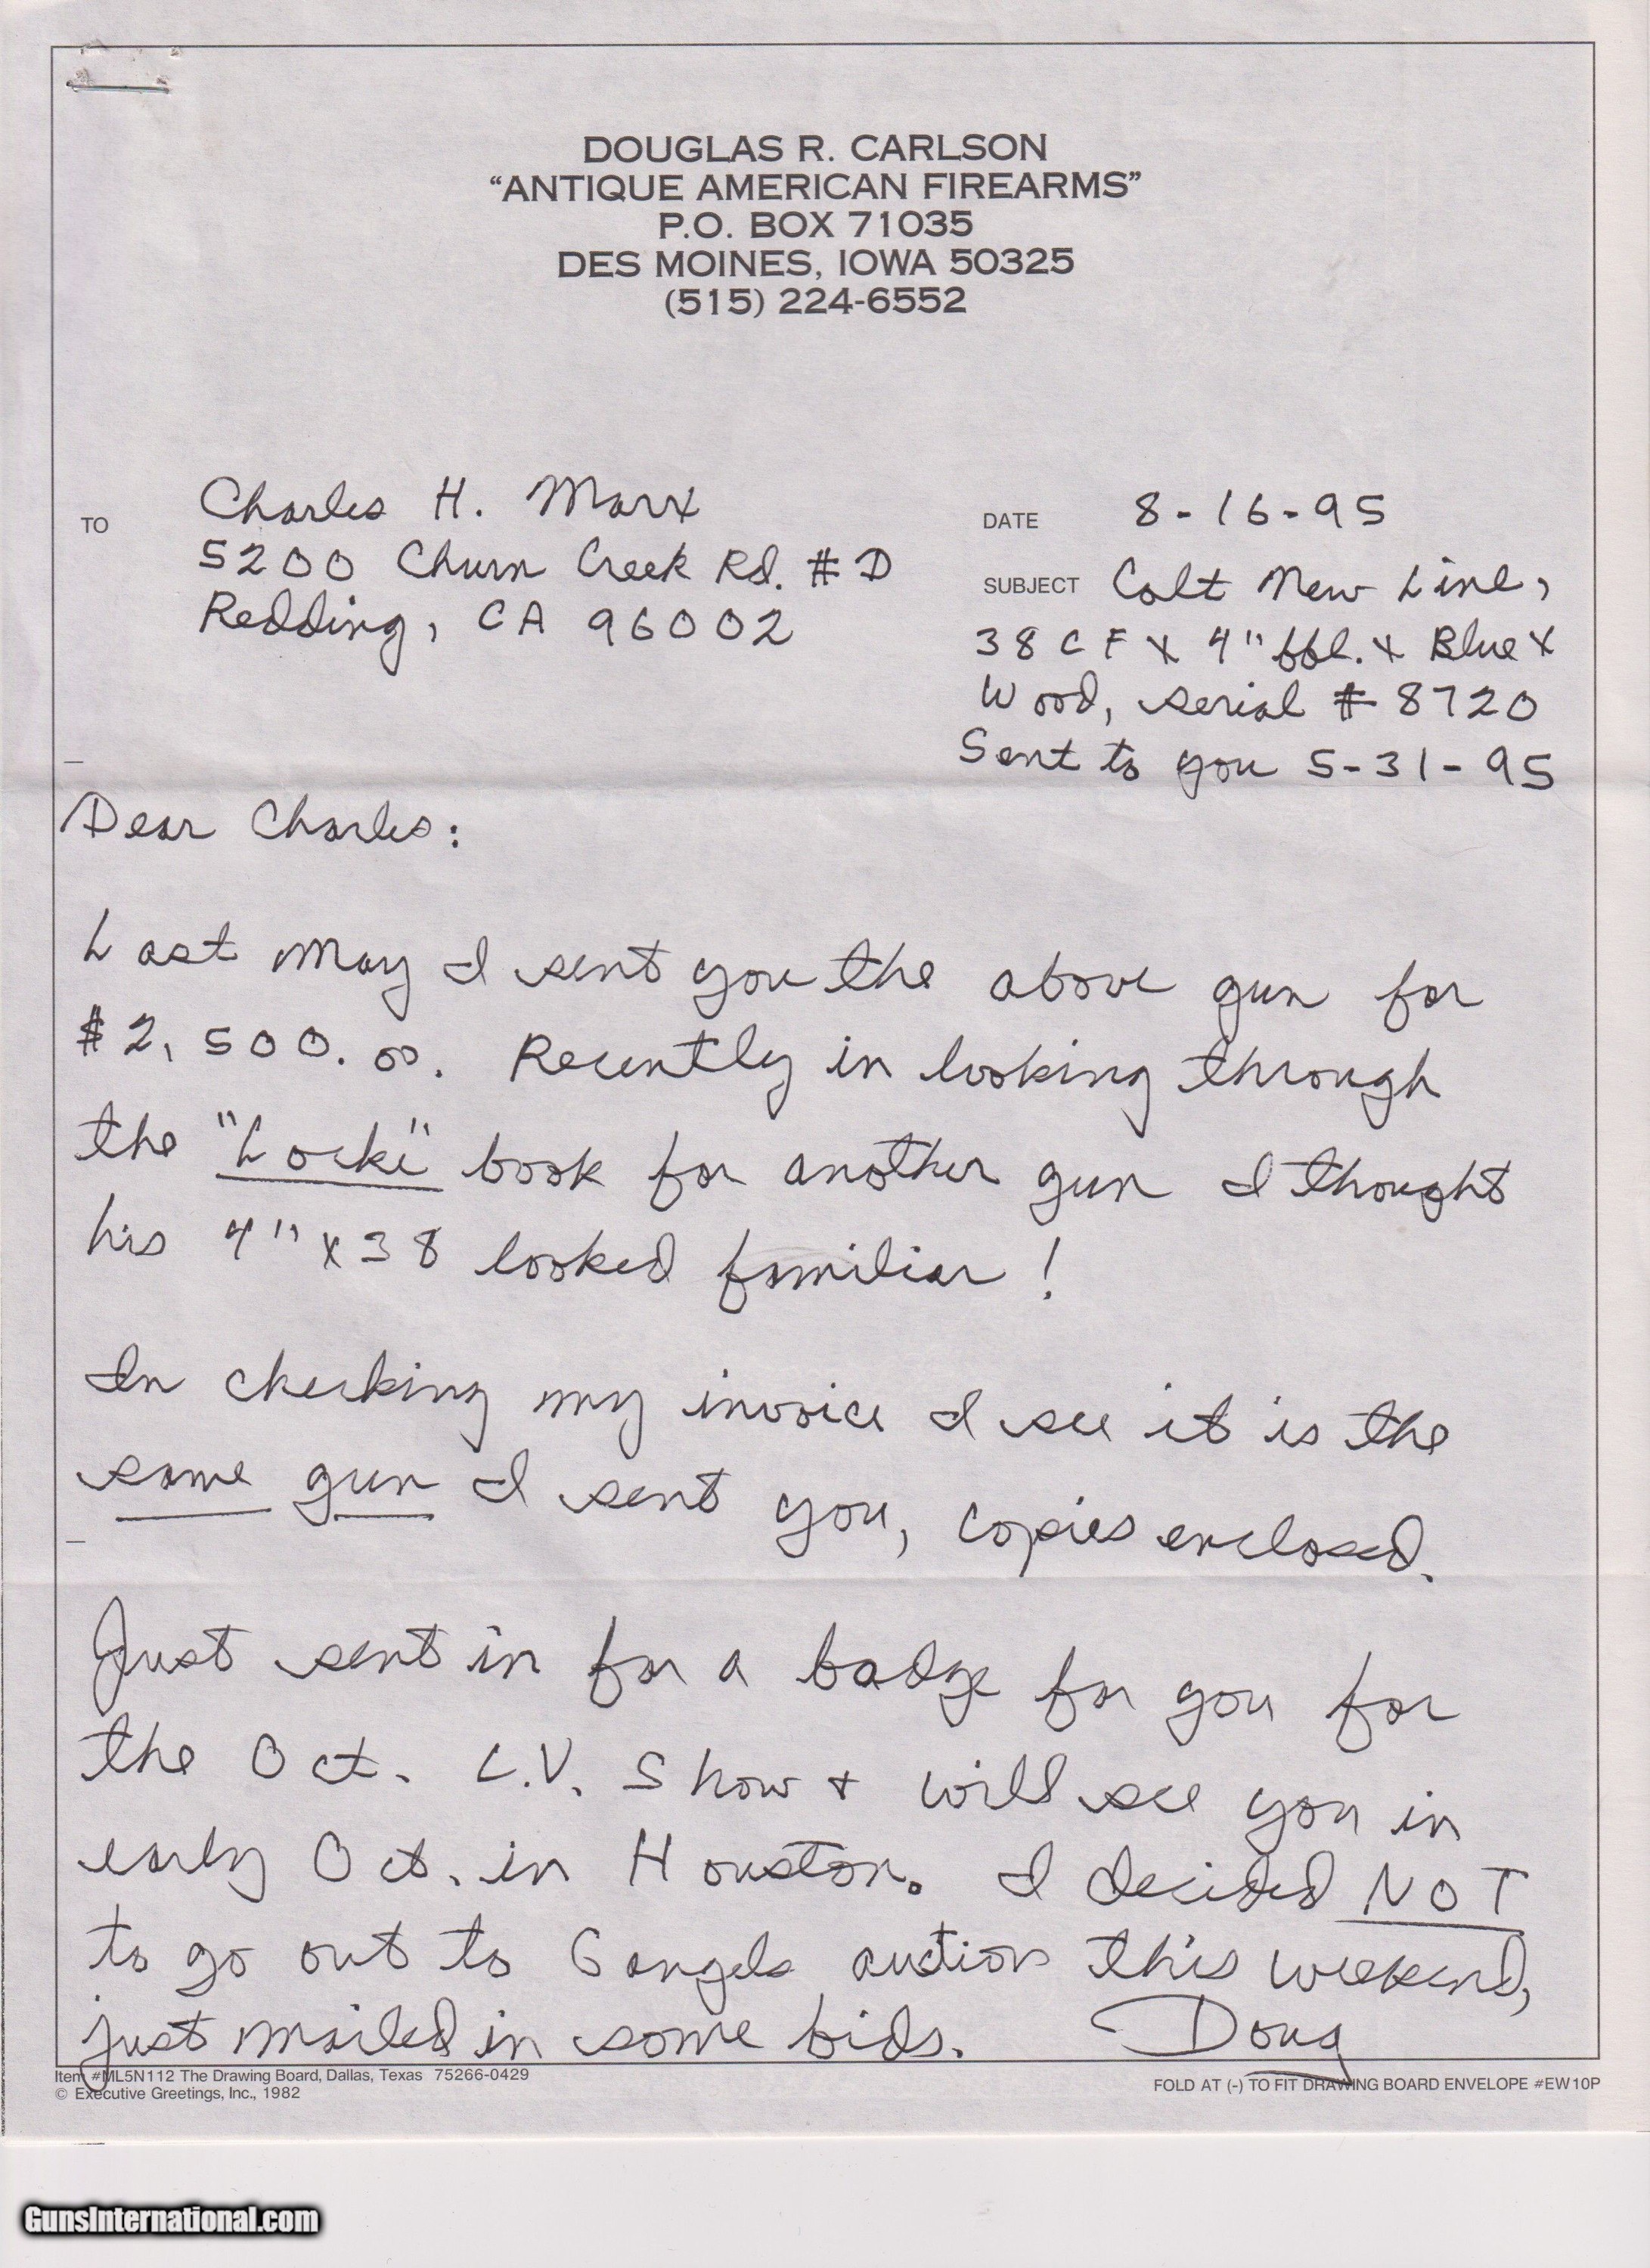 DOUGLAS R. CARLSON
“ANTIQUE AMERICAN FIREARMS”
P.O. BOX 71035
DES MOINES, IOWA 50325
(515) 224-6552
TO Charles H. Marx
5200 Churn Creek Rd. #D
Redding, CA 96002
DATE 8-16-95
SUBJECT Colt New Line,
38 CF x 4" bbl. x Blue x
Wood, serial # 8720
Sent to you 5-31-95
Dear Charles:
Last May I sent you the above gun for
$2,500.00. Recently in looking through
the "Locke" book for another gun I thought
his 4" x 38 looked familiar!
In checking my invoice I see it is the
same gun I sent you, copies enclosed.
Just sent in for a badge for you for
the Oct. L.V. Show + will see you in
early Oct. in Houston. I decided NOT
to go out to Gangels auction this weekend,
just mailed in some bids. Doug
Item #ML5N112 The Drawing Board, Dallas, Texas 75266-0429
© Executive Greetings, Inc., 1982
FOLD AT (-) TO FIT DRAWING BOARD ENVELOPE #EW10P
GunsInternational.com